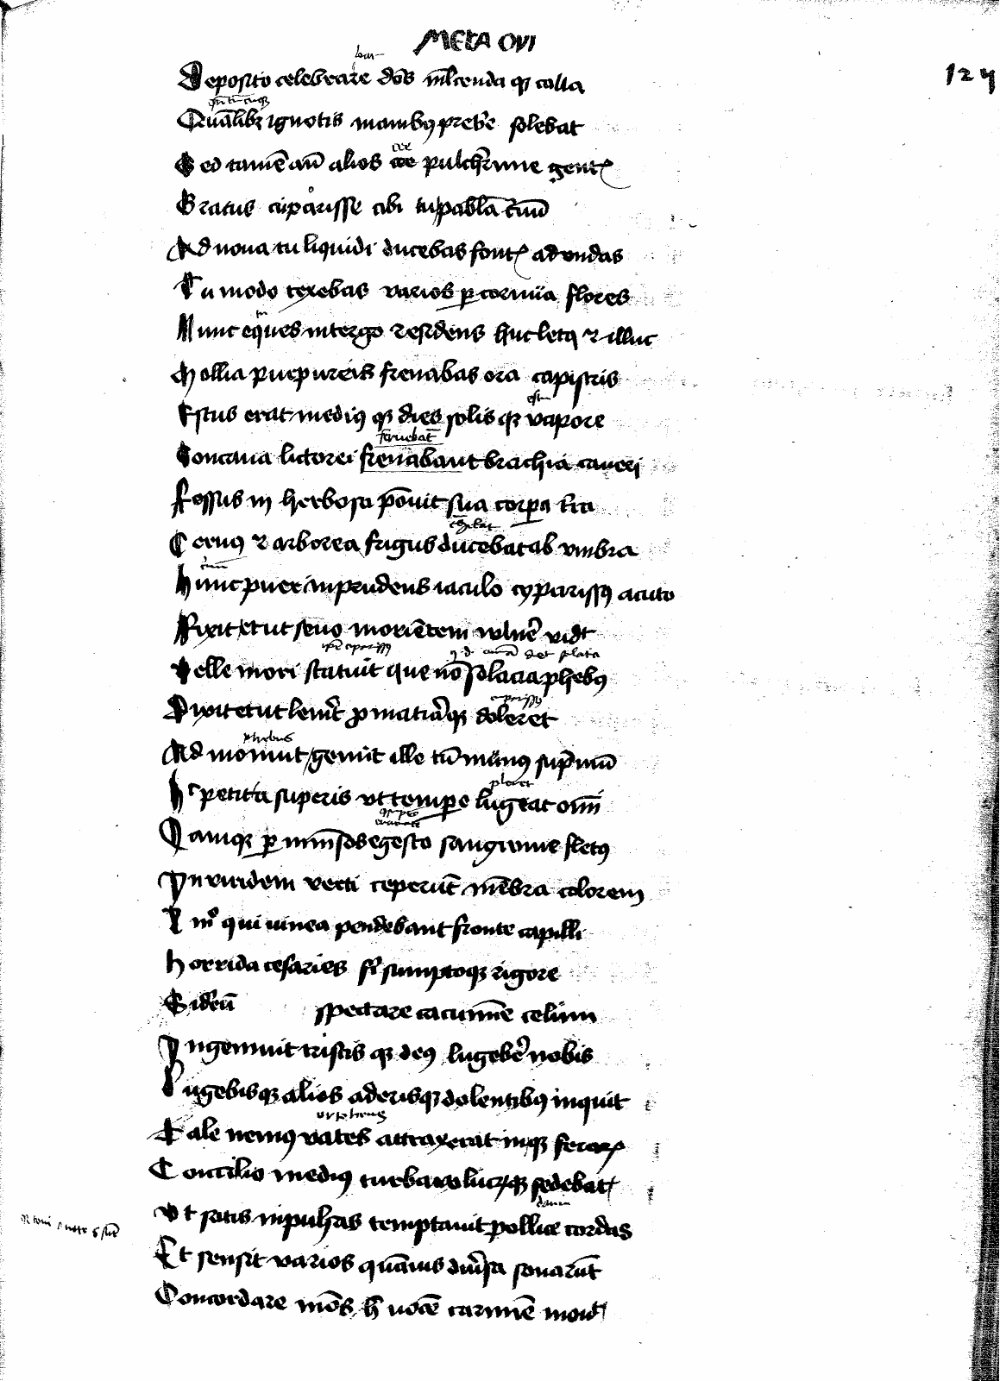 META OVI
127
Deposito celebrare dom͞ ml͞cenda qꝫ colla
Quālibꝫ ignotis manibꝰ prebe͛ solebat
Sed tamē an̄ alios pulch͛rime gentꝭ
Gratus cipᵒarisse tibi tu pabl̄a c͛uū
Ad noua tu liquidi ducebas fontꝭ ad undas
Tu modo texebas uarios ꝑ cornua flores
Nunc eques in tergo residens huc letꝰ ⁊ illuc
Mollia purpureis frenabas ora capistris
Estus erat mediꝰ qꝫ dies solis qꝫ uapore
feruebāt
Concaua litorei frenabant brachia cancri
Fessus in herbosa po͞uit sua corꝑa t͛ra
Ceruꝰ ⁊ arborea frigus ducebat ab umbra
Hunc puer inprudens iaculo cyparissꝰ acuto
Fixit et ut seuo moriētem uuln͛e uidt͛
Uelle mori statuit que nō solacia phebꝰ
Dixit et ut leuit͛ ꝓ materiaqꝫ doleret
phebus
Admonuit gemit ille tn̄ munꝰ sup͛mū
ploret
Hᶜ petit a superis ut tempore lugeat om̄i
Iamqꝫ ꝑ inmēsos egesto sanguine fletꝰ
In uiridem uerti ceperūt mēbra colorem
Et mᵒ qui niuea pendebant fronte capilli
Horrida cesaries fi͛ sumptoqꝫ rigore
Sid͛eū spectare cacumīe celum
Ingemuit tristis qꝫ deꝰ lugebe͛ nobis
Lugebisqꝫ alios aderisqꝫ dolentibꝰ inquit
orpheus
Tale nemꝰ uates attraxerat inqꝫ feraꝝ
Concilio mediꝰ turba uolucꝝqꝫ sedebat
Ut satis inpulsas temptauit pollice cordas
Et sensit uarios quāuis diu͛sa sonarēt
Concordare mōs h̄ uocē carmīe mouit